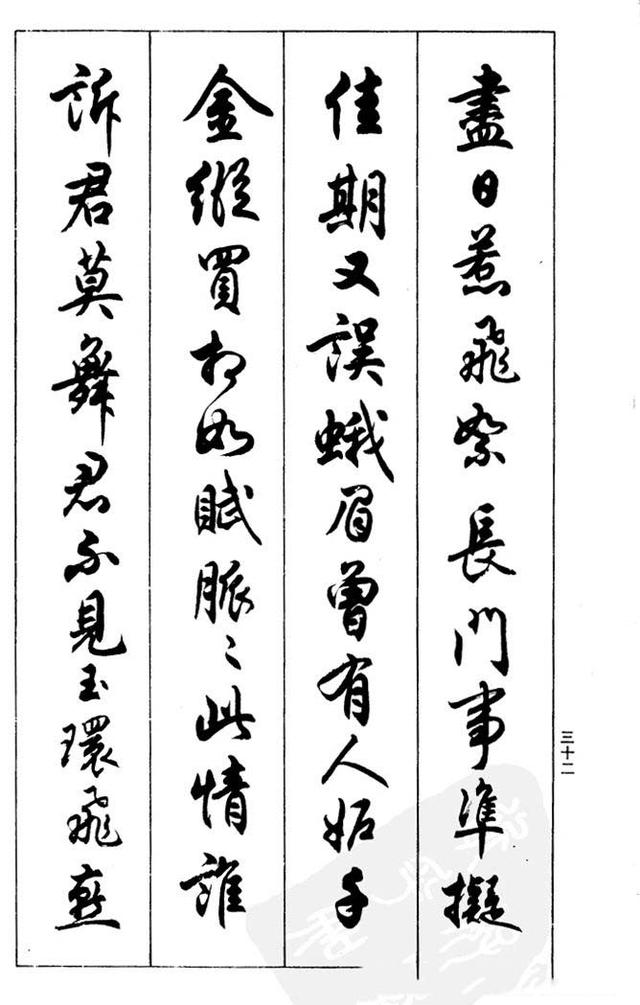 盡日惹飛絮長門事準擬
佳期又誤蛾眉曾有人妬千
金縱買相如賦脈〻此情誰
訴君莫舞君不見玉環飛燕
三十二